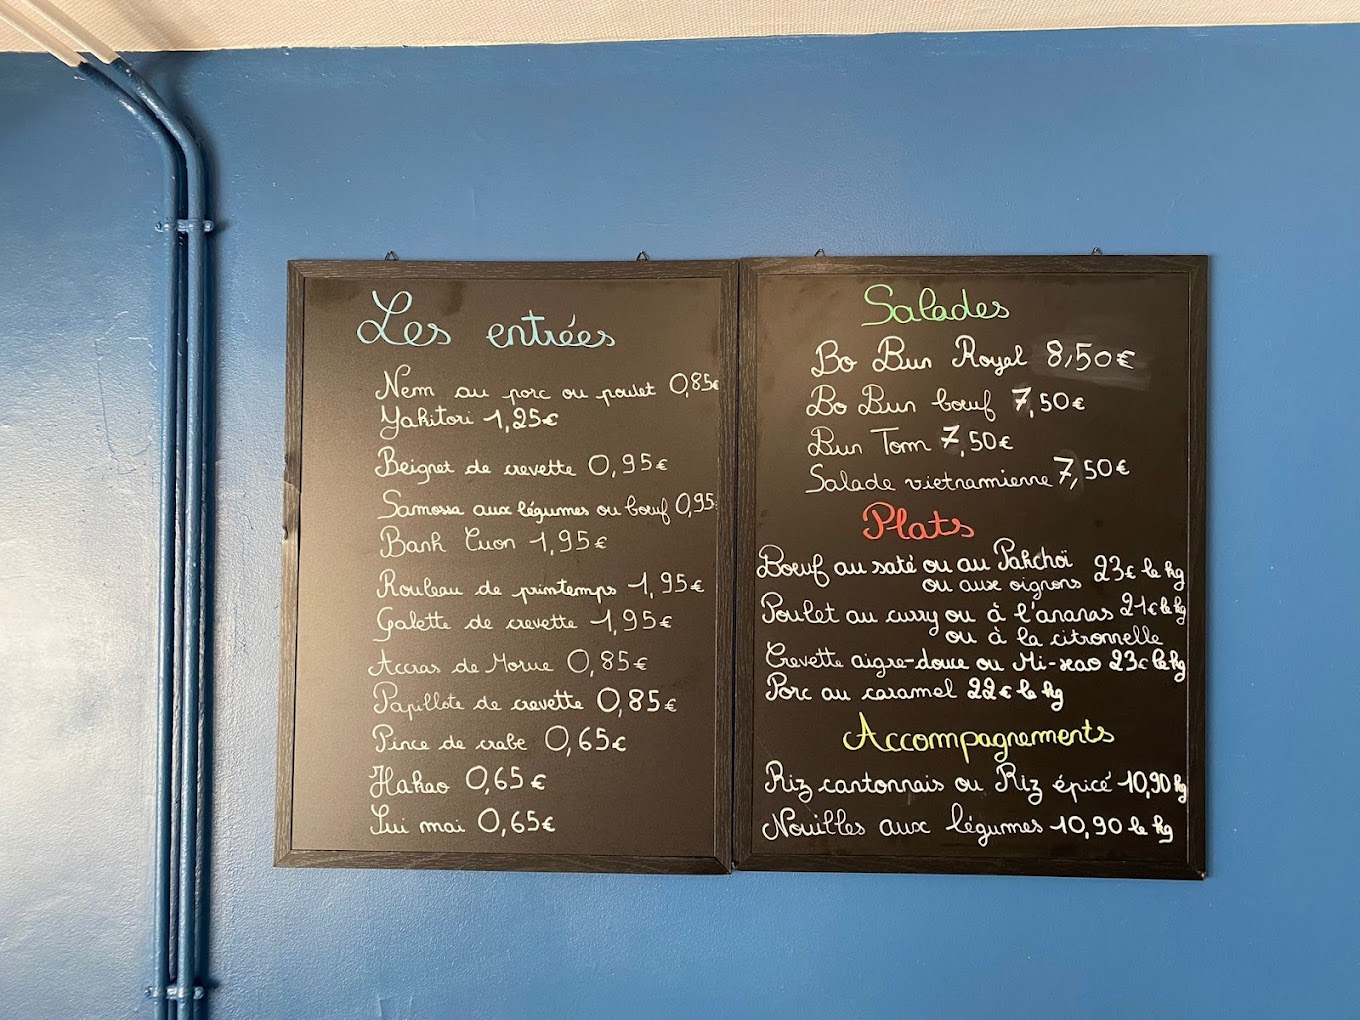 Les entrées
Nem au porc ou poulet 0,85€
Yakitori 1,25€
Beignet de crevette 0,95€
Samossa aux légumes ou bœuf 0,95
Banh Cuon 1,95€
Rouleau de printemps 1,95€
Galette de crevette 1,95€
Accras de Morue 0,85€
Papillote de crevette 0,85€
Pince de crabe 0,65€
Hakao 0,65€
Sui mai 0,65€
Salades
Bo Bun Royal 8,50€
Bo Bun bœuf 7,50€
Bun Tom 7,50€
Salade vietnamienne 7,50€
Plats
Bœuf au saté ou au Pakchoï 23€ le kg
ou aux oignons
Poulet au curry ou à l'ananas 21€ le kg
ou à la citronnelle
Crevette aigre-douce ou Mi-xao 23€ le kg
Porc au caramel 22€ le kg
Accompagnements
Riz cantonnais ou Riz épicé 10,90 kg
Nouilles aux légumes 10,90 le kg